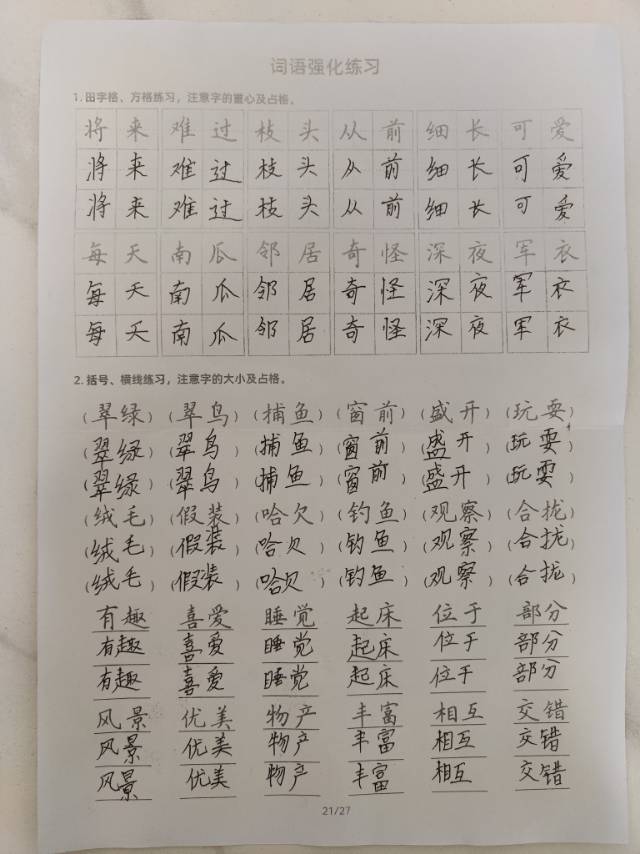 词语强化练习
1. 田字格、方格练习，注意字的重心及占格。
将来 难过 枝头 从前 细长 可爱
将来 难过 枝头 从前 细长 可爱
将来 难过 枝头 从前 细长 可爱
每天 南瓜 邻居 奇怪 深夜 军衣
每天 南瓜 邻居 奇怪 深夜 军衣
每天 南瓜 邻居 奇怪 深夜 军衣
2. 括号、横线练习，注意字的大小及占格。
（翠绿）（翠鸟）（捕鱼）（窗前）（盛开）（玩耍）
（翠绿）（翠鸟）（捕鱼）（窗前）（盛开）（玩耍）
（翠绿）（翠鸟）（捕鱼）（窗前）（盛开）（玩耍）
（绒毛）（假装）（哈欠）（钓鱼）（观察）（合拢）
（绒毛）（假装）（哈欠）（钓鱼）（观察）（合拢）
（绒毛）（假装）（哈欠）（钓鱼）（观察）（合拢）
有趣 喜爱 睡觉 起床 位于 部分
有趣 喜爱 睡觉 起床 位于 部分
有趣 喜爱 睡觉 起床 位于 部分
风景 优美 物产 丰富 相互 交错
风景 优美 物产 丰富 相互 交错
风景 优美 物产 丰富 相互 交错
21/27